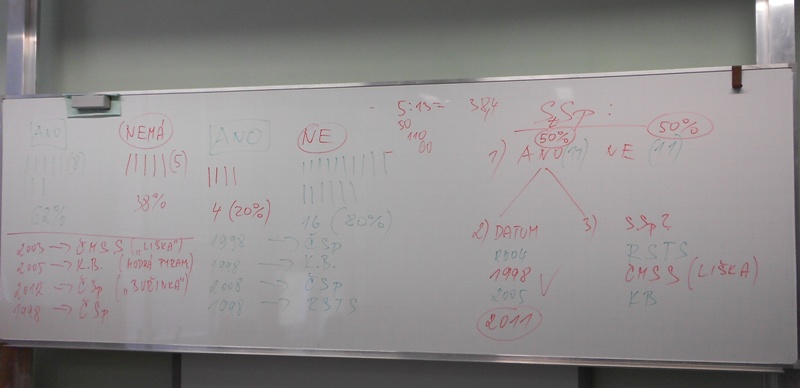 ANO (8)
62%
NEMÁ (5)
38%
2003 → ČMSS („LIŠKA“)
2005 → K.B. (MODRÁ PYRAM.)
2012 → ČSp („BUŘINKA“)
1998 → ČSp
ANO
4 (20%)
NE
16 (80%)
1998 → ČSp
1998 → K.B.
2008 → ČSp
1998 → RSTS
5:13= 38,4
50
110
60
SSp:
50%
50%
1) ANO (11) NE (11)
2) DATUM
2004
1998
2005
2011
3) SSp?
RSTS
ČMSS (LIŠKA)
KB